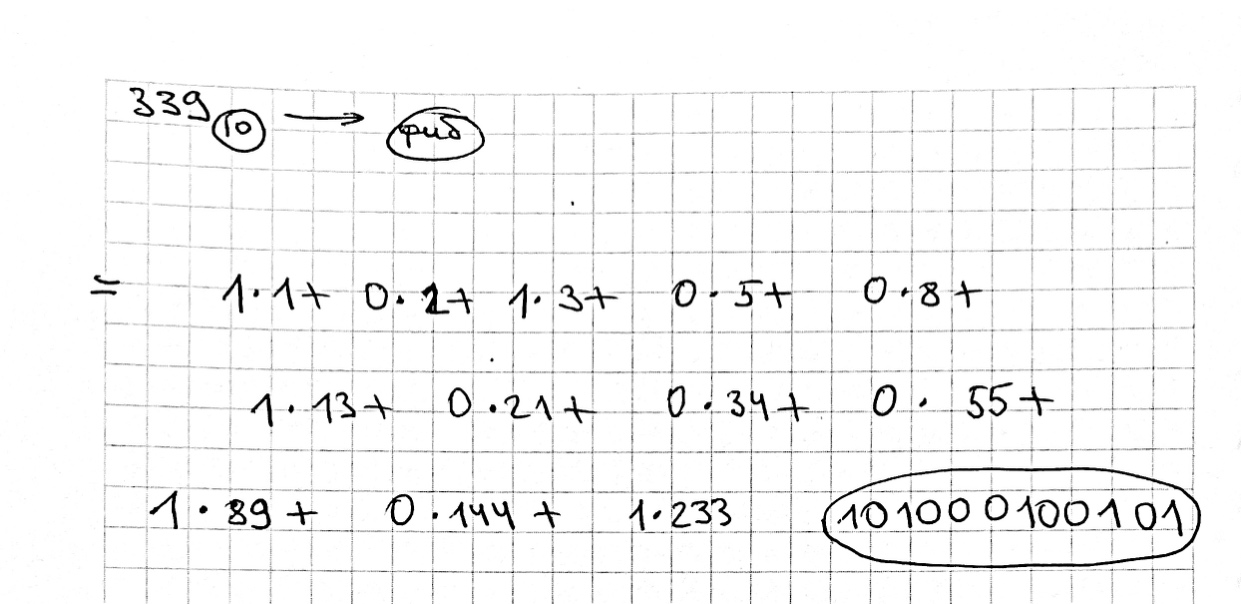 339 10 → фиб
= 1·1+ 0·2+ 1·3+ 0·5+ 0·8+
1·13+ 0·21+ 0·34+ 0·55+
1·89+ 0·144+ 1·233 101000100101